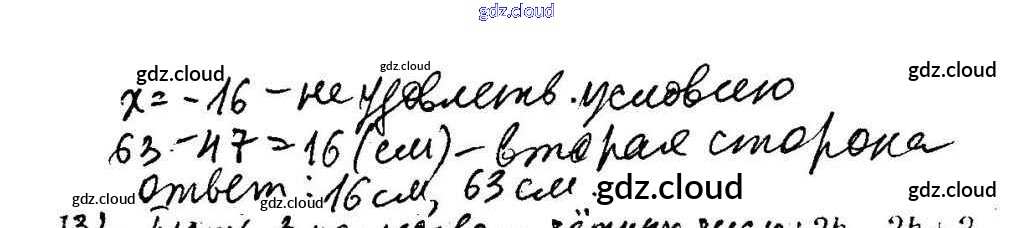 gdz.cloud
gdz.cloud gdz.cloud gdz.cloud
x = -16 - не удовлетв. условию
63 - 47 = 16 (см) - вторая сторона
Ответ: 16 см, 63 см.
gdz.cloud gdz.cloud gdz.cloud gdz.cloud